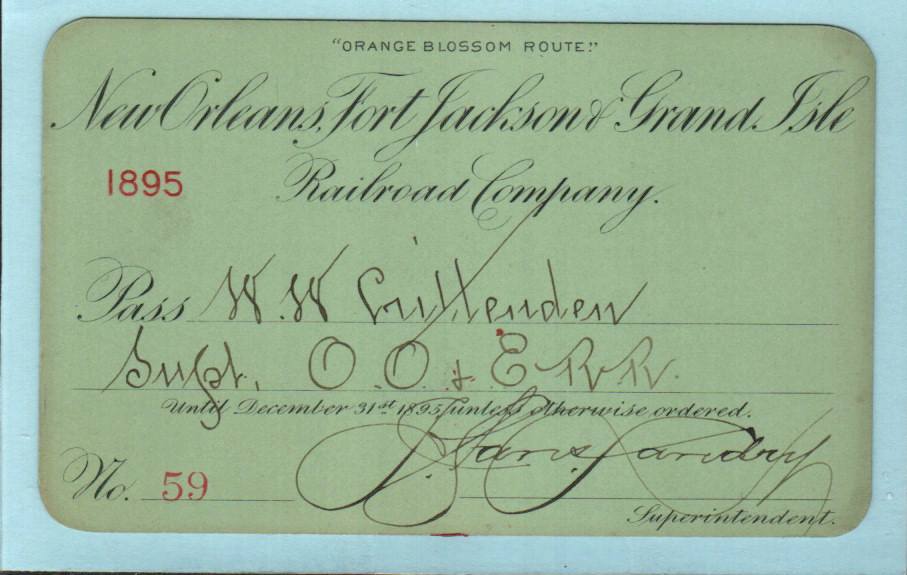 "ORANGE BLOSSOM ROUTE."
New Orleans, Fort Jackson & Grand Isle
1895
Railroad Company.
Pass W. W Crittenden
Supt. O. O. & E R R.
Until December 31st 1895, unless otherwise ordered.
No. 59
Superintendent.